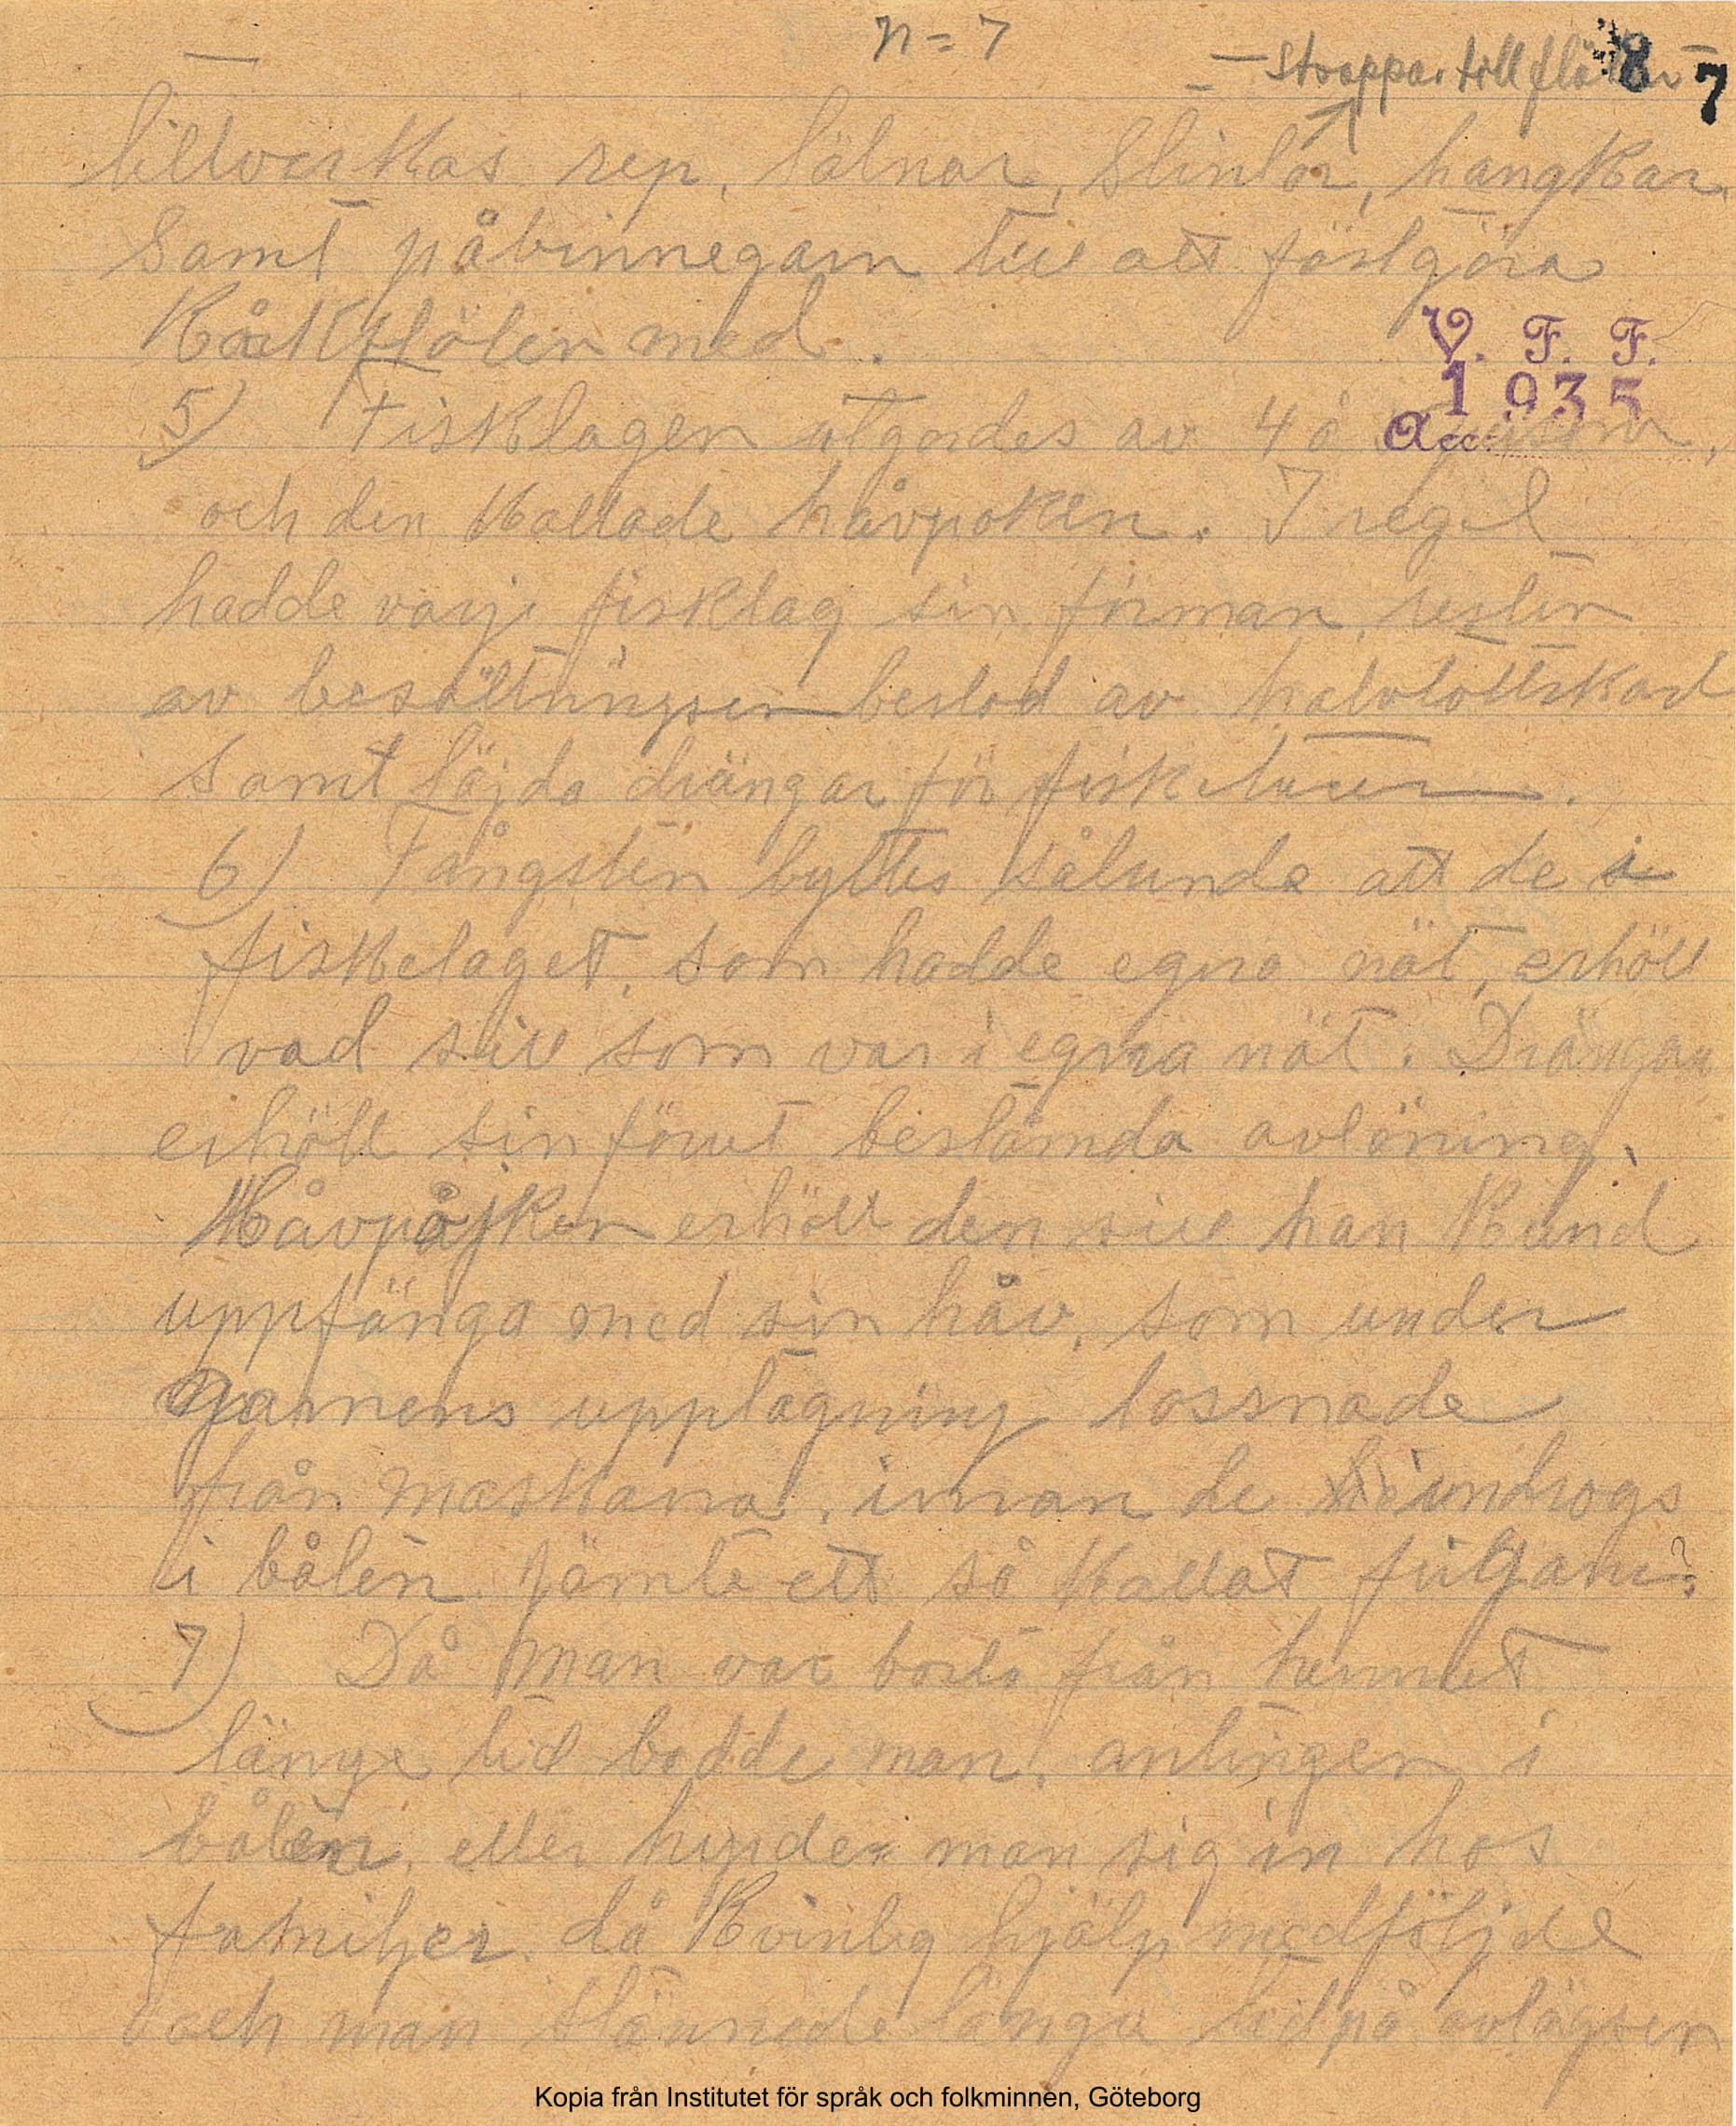 n = 7
— stroppar till flöten — 8 7
tillverkas rep, tälnar, stintor, hangkar
samt påbinnegarn till att fästgöra
Kåckflöten med.
V. F. F.
1935
Acc.
5) Fisklagen utgordes av 4 à
och den Kallade håvpoken. I regel
hadde varje fisklag sin förman, resten
av besättningen bestod av halvlottskarl
samt läjda drängar för fisketuren.
6) Fångsten byttes sålunda att de i
fiskelaget, som hadde egna nät, erhöll
vad sill som var i egna nät. Drängar
erhöll sin förut bestämda avlöning.
Håvpåjken erhöll den sill han Kund
uppfånga med sin håv, som under
garnens upptagning lossnade
från maskarna, innan de indrogs
i båten jämte ett så Kallat
7) Då man var borta från hemmet
länge tid bodde man, antingen i
båten, eller hyrde man sig in hos
familjer då Kvinlig hjälp medföljde
och man stannade länge tid på avlägsen
Kopia från Institutet för språk och folkminnen, Göteborg